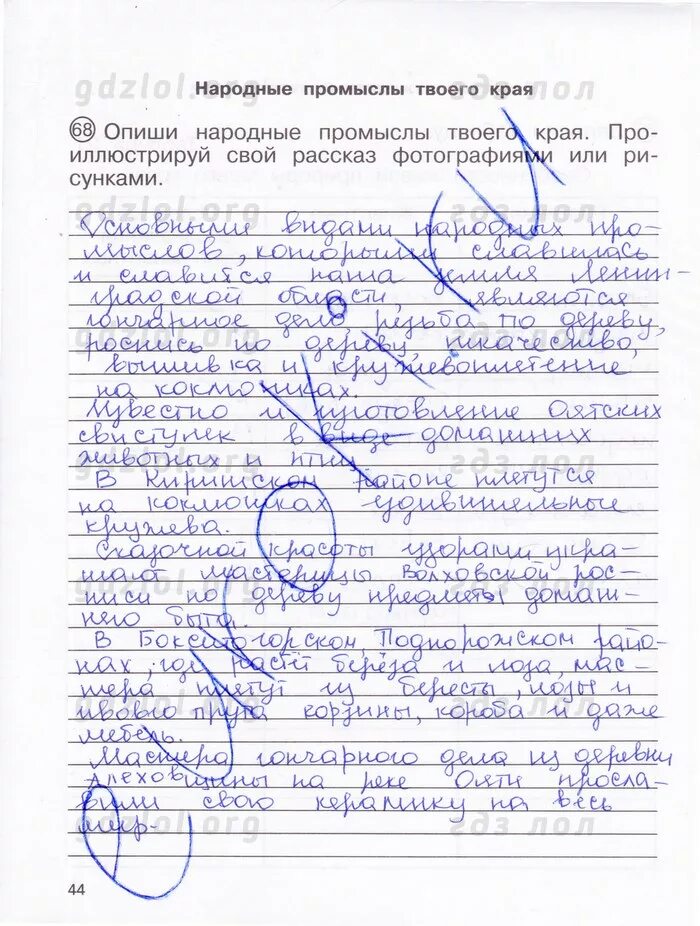 gdzlol.org гдз лол
Народные промыслы твоего края
68 Опиши народные промыслы твоего края. Про-
иллюстрируй свой рассказ фотографиями или ри-
сунками.
gdzlol.org гдз лол
Основными видами народных про-
мыслов, которыми славилась
и славится наша земля Ленин-
градской области, являются
гончарное дело, резьба по дереву,
роспись по дереву, ткачество,
вышивка и кружевоплетение
на коклюшках.
Известно и изготовление Оятских
свистулек в виде домашних
животных и птиц.
В Киришском районе плетутся
на коклюшках удивительные
кружева.
Сказочной красоты узорами укра-
шают мастерицы Волховской рос-
писи по дереву предметы домаш-
него быта.
В Бокситогорском, Подпорожском райо-
нах, где растёт берёза и лоза, мас-
тера плетут из бересты, лозы и
ивового прута корзины, короба и даже
мебель.
Мастера гончарного дела из деревни
Алеховщины на реке Ояти просла-
вили свою керамику на весь
мир.
gdzlol.org гдз лол
44